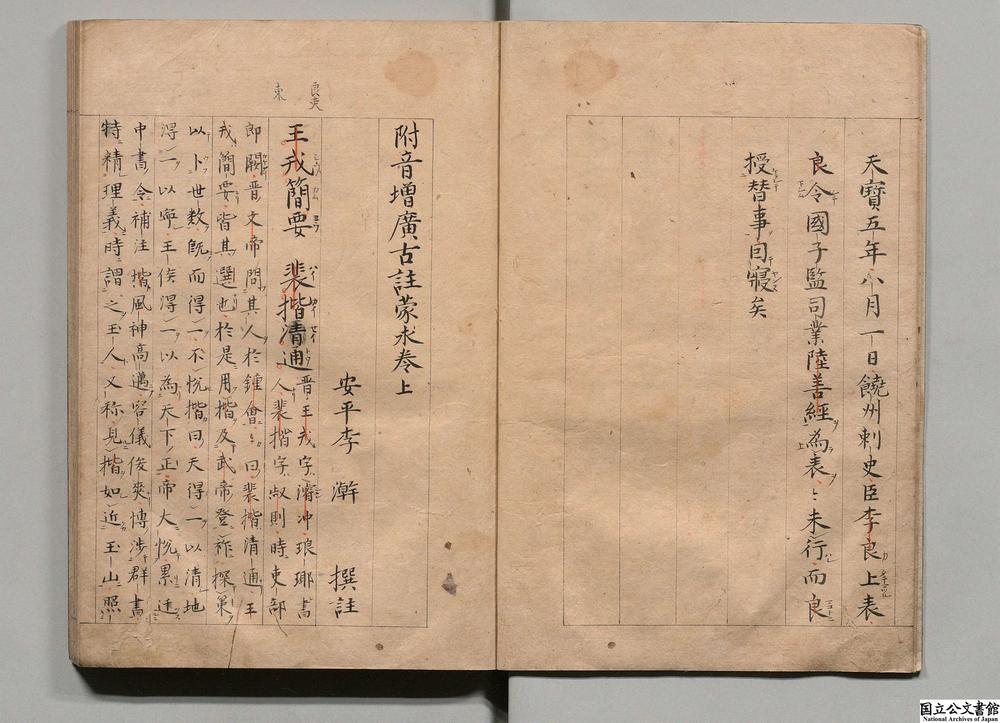 天寶五年八月一日饒州刺史臣李良上表
良令國子監司業陸善經為表〻未行而良
授替事因寢矣
附音增廣古註蒙求巻上
安平李瀚撰註
王戎簡要 裴楷清通
晋王戎字濬冲琅瑘
人裴楷字叔則時吏部
郎闕晋文帝問其人於鍾會〻曰裴楷清通王
戎簡要皆其選也於是用楷及武帝登祚探策
以卜世数既而得一不恱楷曰天得一以清地
得一以寧王侯得一以為天下正帝大恱累迁
中書令補注楷風神高邁容儀俊爽博涉群書
特精理義時謂之玉人又称見楷如近玉山照
国立公文書館
National Archives of Japan